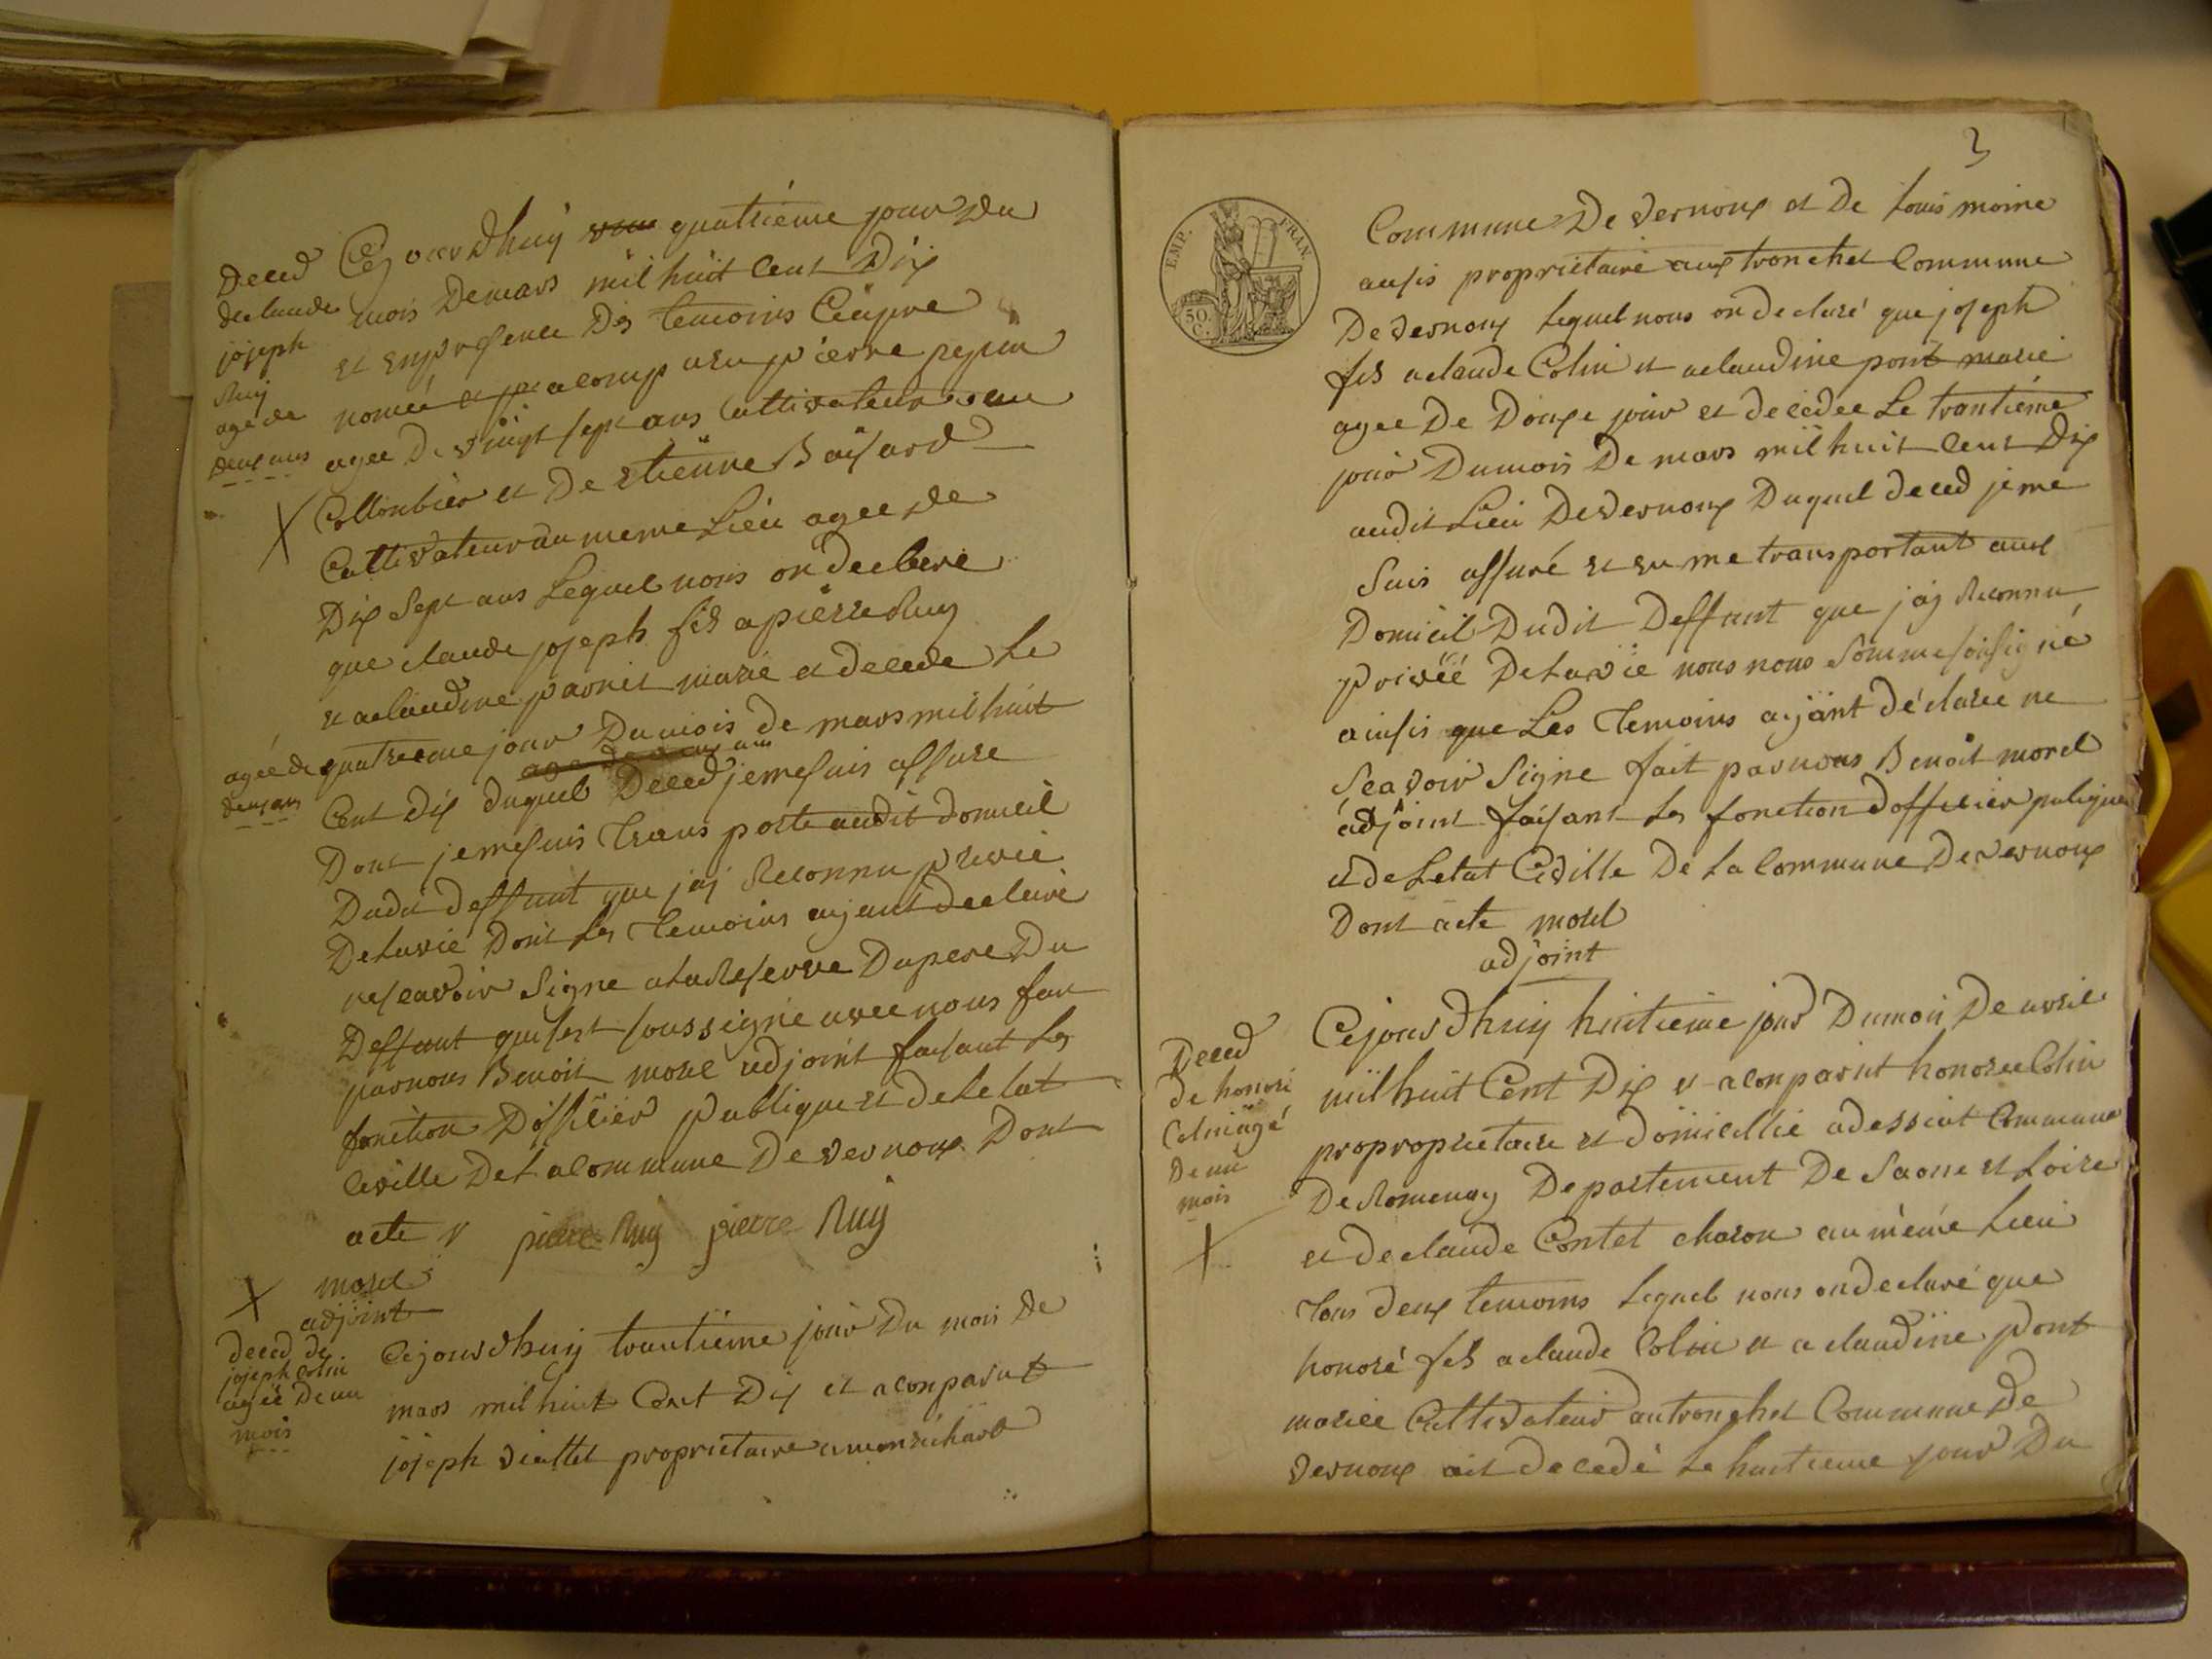 Deced
de claude
joseph
Ruy
agé de
deux ans
Cejourdhuy quatrième jour du
mois Demars mil huit Cent Dix
et en presence Des temoins Ciapre
nomée et acomparu pierre pepin
agee De vingt sept ans Cultivateur au
Collonbier et De etiênne Baisard
Cultivateur au meme Lieu agee de
Dix Sept ans Lequel nous on declare
que claude joseph fils a pierre Ruy
et a claudine parnet marie a decede Le
quatreeme jour Dumois de mars mil huit
agée de
deux ans
Cent dix duquel Deced jemesuis assure
Dont jemesuis Transporte audit domicil
Dudit deffunt que jaj Reconnu privée
Delavie Dont Les Temoins ayant declaré
ne scavoir Signe ala Reserve Dupere Du
Deffunt quisest soussigné avec nous fait
parnous Benoit morel adjoint faisant Les
fonction Dofficier publique et de Letat
Civille De La Commune De vernoux Dont
acte pierre Ruy pierre Ruy
morel
adjoint
deced de
joseph Colin
agée De un
mois
Cejourdhuy trantième jour Du mois De
mars mil huit Cent Dix et aconparut
joseph viallet proprietaire a monrichard
3
EMP. FRAN.
50. C.
Commune De vernoux et De Louis moine
ausis proprietaire aux tronchet Commune
De vernoux Lequel nous on declaré que joseph
fils a claude Colin et a claudine pont marié
agee De Douze jour et decedee Le trantième
jour Dumois De mars mil huit Cent Dix
audit Lieu De vernoux Duquel deced je me
Suis assuré et en me transportant aux
Domicil Dudit Deffunt que jaj Reconnu
privéé De La vie nous nous Sommes soisigné
ainsis que Les Temoins ayant déclaree ne
Scavoir Signe fait parnous Benoit morel
adjoint faisant Les fonction dofficier publique
et de Letat Civille De La Commune De vernoux
Dont acte morel
adjoint
Deced
de honoré
Colin agé
De un
mois
Cejourdhuy huitieme jour Dumois De avril
mil huit Cent Dix et aconparut honoree Colin
propropriétaire et domicillié a dessiat Commune
De Romenay Departement De Saone et Loire
et De claude Contet charon au même Lieu
Tous deux temoins Lequel nous ondeclaré que
honoré fils a claude Colin et a claudine pont
mariee Cultivateur autronchet Commune De
vernoux ait decedé Le huitieme jour Du